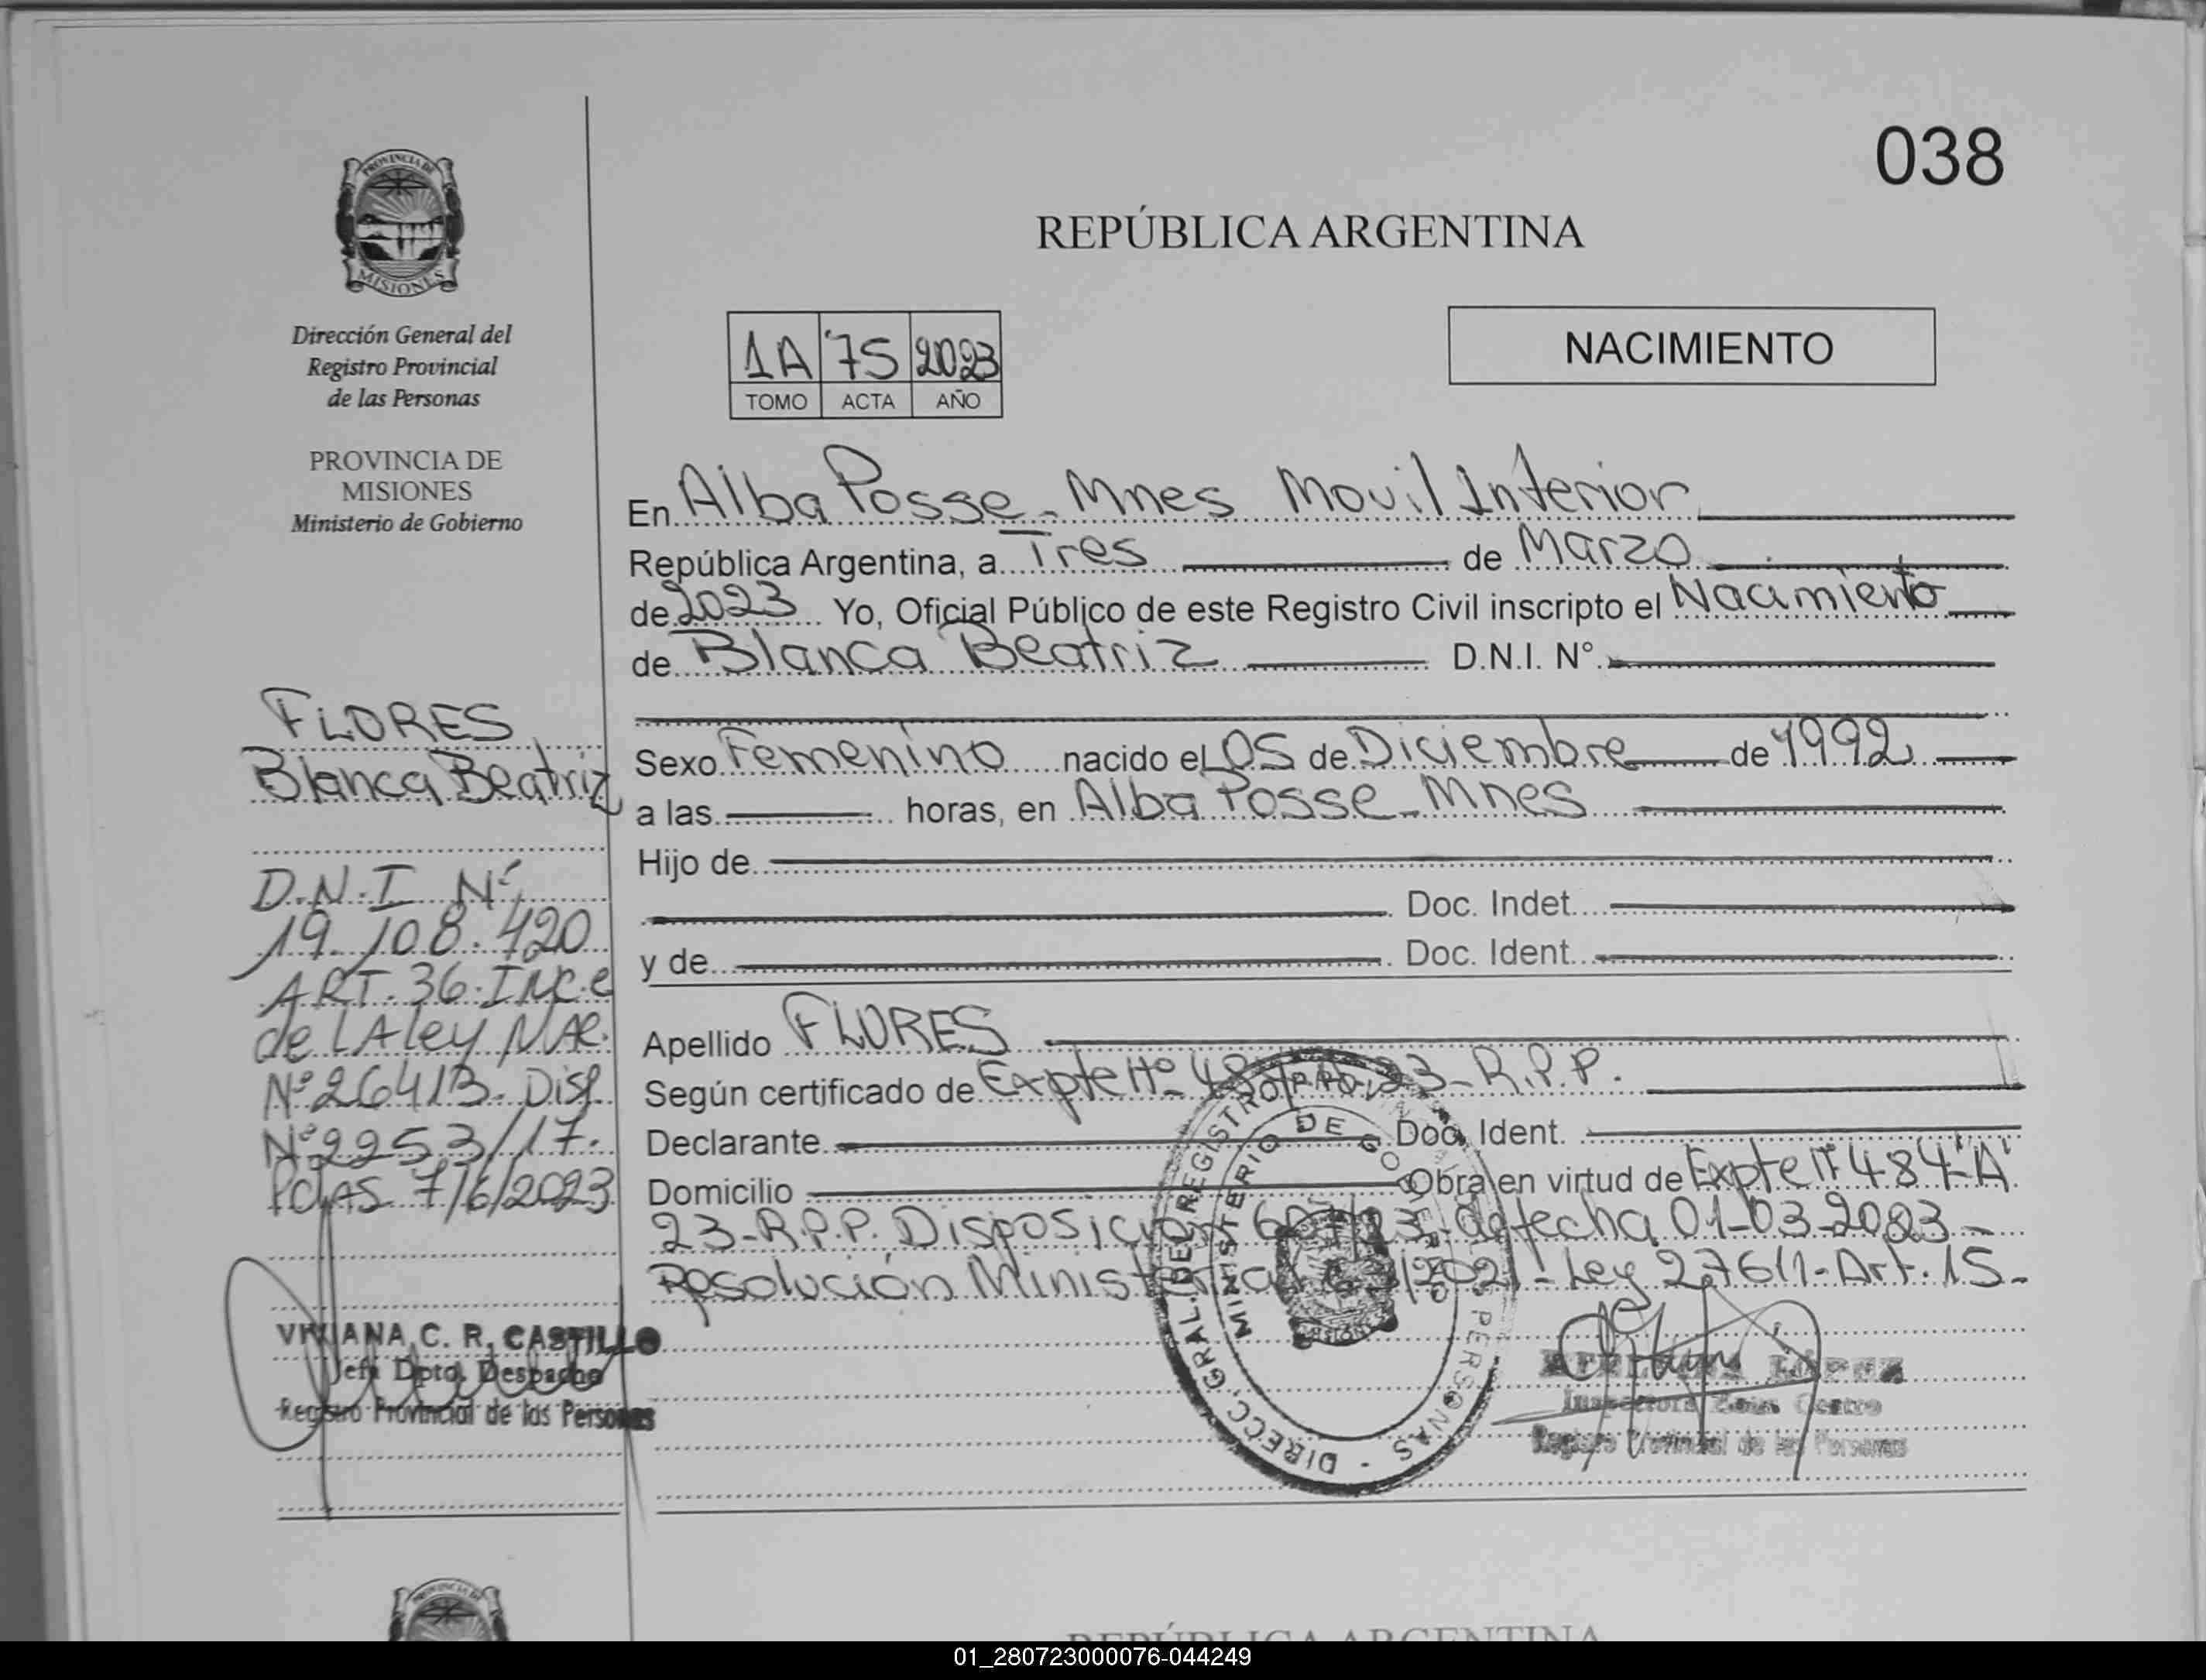 038
PROVINCIA DE
MISIONES
REPÚBLICA ARGENTINA
Dirección General del
Registro Provincial
de las Personas
PROVINCIA DE
MISIONES
Ministerio de Gobierno
1A 75 2023
TOMO ACTA AÑO
NACIMIENTO
En Alba Posse - Mnes Movil Interior
República Argentina, a Tres de Marzo
de 2023 Yo, Oficial Público de este Registro Civil inscripto el Nacimiento
de Blanca Beatriz D.N.I. N°
Sexo Femenino nacido el 05 de Diciembre de 1992
a las horas, en Alba Posse - Mnes
Hijo de
Doc. Indet.
y de Doc. Ident.
Apellido FLORES
Según certificado de Expte Nº 23 - R.P.P.
Declarante Doc. Ident.
Domicilio Obra en virtud de Expte Nº 484 "A"
23 - R.P.P. Disposición de fecha 01-03-2023 -
Resolución Ministerial /2021 - Ley 27611 - Art. 15 -
FLORES
Blanca Beatriz
D.N.I Nº
19.108.420
ART. 36. INC. e
de LA ley NAC.
Nº 26413. Disp.
Nº 2253/17.
Pdas 7/6/2023
VIVIANA C. R. CASTILLO
Jefa Dpto. Despacho
Registro Provincial de las Personas
DIRECC. GRAL. DEL REGISTRO PROVINCIAL DE LAS PERSONAS -
MINISTERIO DE GOBIERNO
MISIONES
LÓPEZ
Inspectora Zona Centro
Registro Provincial de las Personas
REPÚBLICA ARGENTINA
01_280723000076-044249